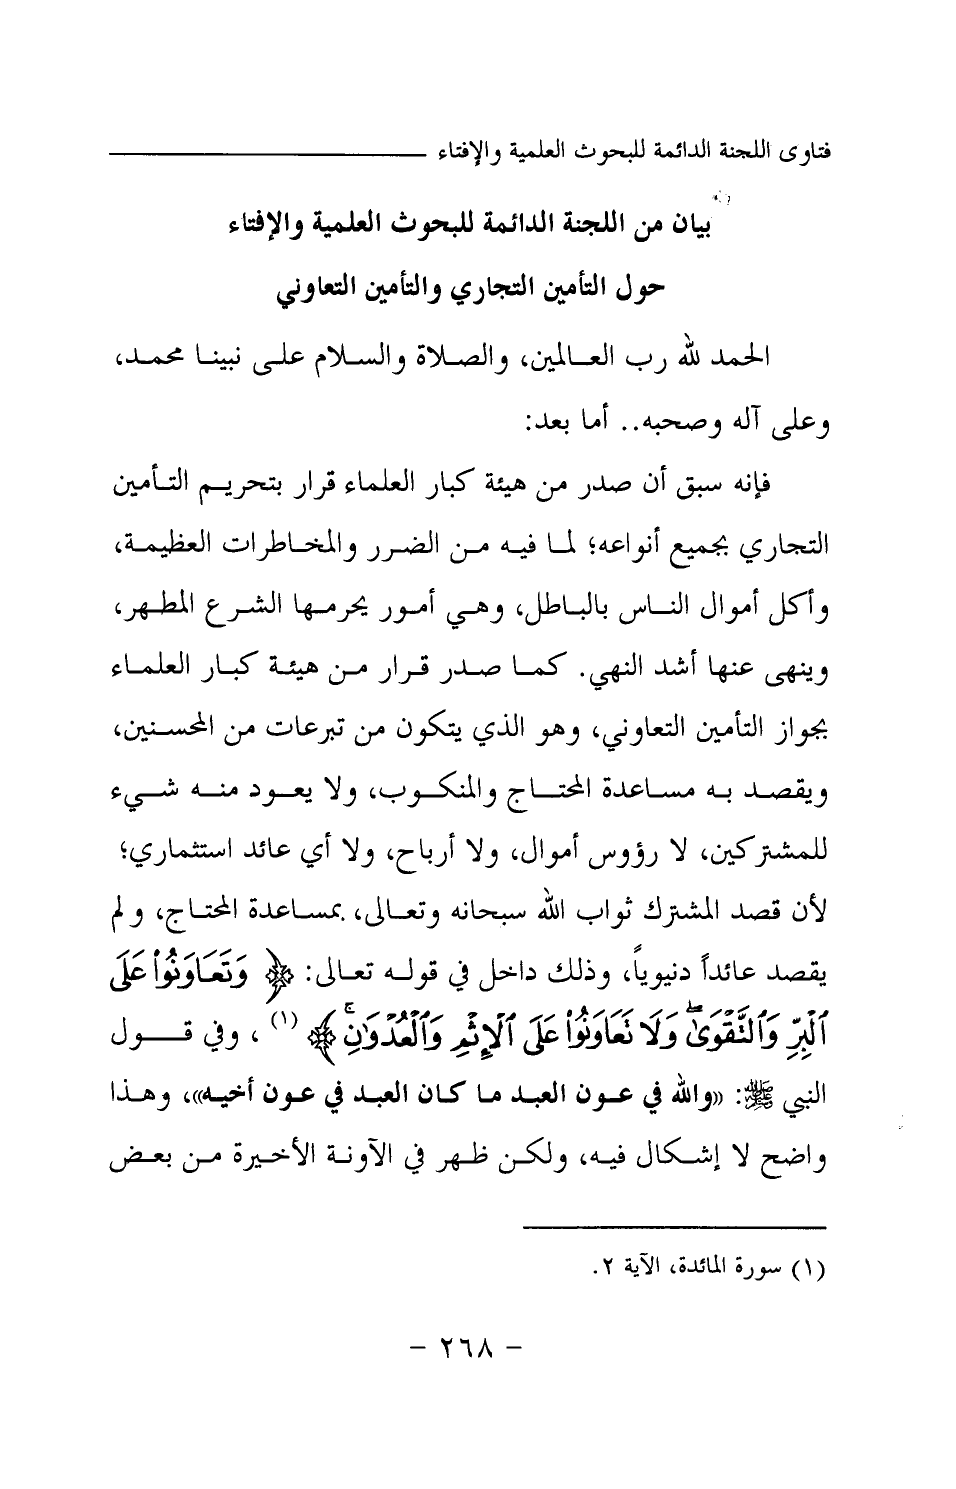 فتاوى اللجنة الدائمة للبحوث العلمية والإفتاء
بيان من اللجنة الدائمة للبحوث العلمية والإفتاء
حول التأمين التجاري والتأمين التعاوني
الحمد لله رب العالمين، والصلاة والسلام على نبينا محمد،
وعلى آله وصحبه.. أما بعد:
فإنه سبق أن صدر من هيئة كبار العلماء قرار بتحريم التأمين
التجاري بجميع أنواعه؛ لما فيه من الضرر والمخاطرات العظيمة،
وأكل أموال الناس بالباطل، وهي أمور يحرمها الشرع المطهر،
وينهى عنها أشد النهي. كما صدر قرار من هيئة كبار العلماء
بجواز التأمين التعاوني، وهو الذي يتكون من تبرعات من المحسنين،
ويقصد به مساعدة المحتاج والمنكوب، ولا يعود منه شيء
للمشتركين، لا رؤوس أموال، ولا أرباح، ولا أي عائد استثماري؛
لأن قصد المشترك ثواب الله سبحانه وتعالى، بمساعدة المحتاج، ولم
يقصد عائداً دنيوياً، وذلك داخل في قوله تعالى: ﴿ وَتَعَاوَنُوا۟ عَلَى
ٱلْبِرِّ وَٱلتَّقْوَىٰ ۖ وَلَا تَعَاوَنُوا۟ عَلَى ٱلْإِثْمِ وَٱلْعُدْوَٰنِ ۚ ﴾ (١) ، وفي قول
النبي ﷺ: «والله في عون العبد ما كان العبد في عون أخيه»، وهذا
واضح لا إشكال فيه، ولكن ظهر في الآونة الأخيرة من بعض
(١) سورة المائدة، الآية ٢.
- ٢٦٨ -